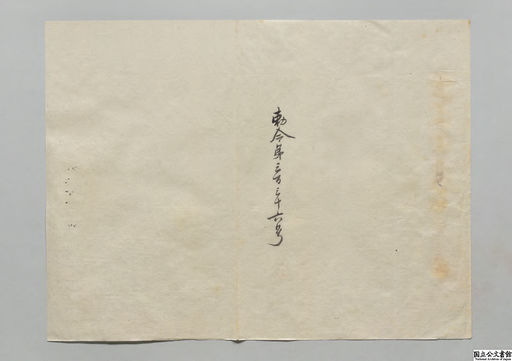 勅令第三百三十六号
国立公文書館
National Archives of Japan